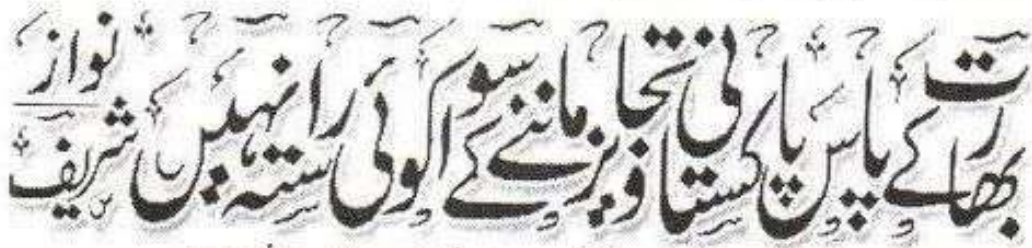 بھارت کے پاس پاکستانی تجاویز ماننے کے سوا کوئی راستہ نہیں
نواز شریف